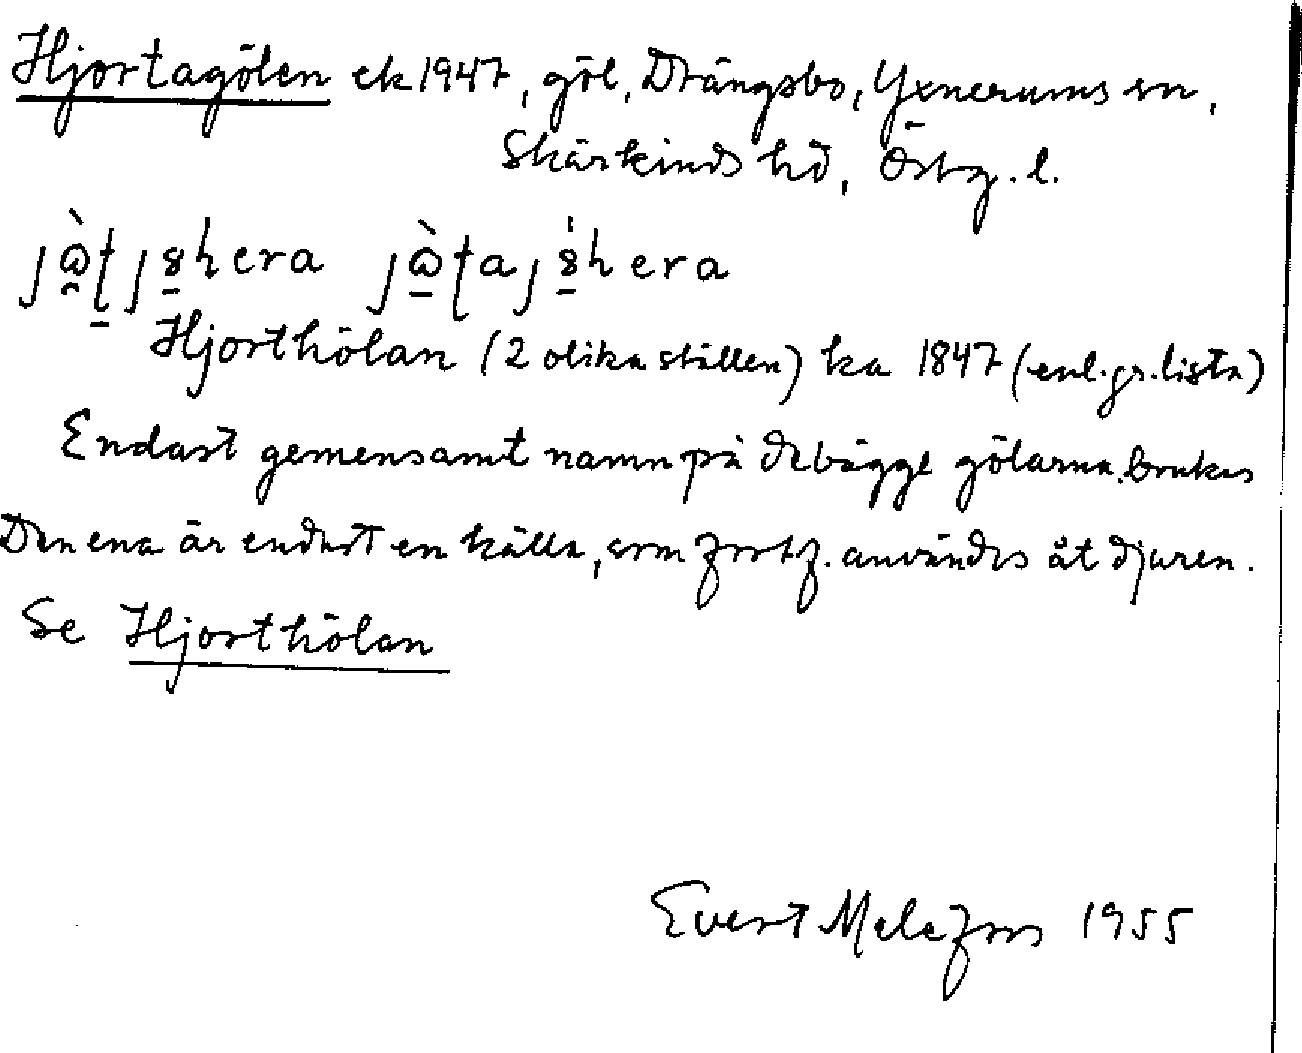 Hjortagölen ek 1947, göl, Drängsbo, Yxnerums sn,
Skärkinds hd, Östg. l.
Hjorthölan (2 olika ställen) ka 1847 (enl. gr. lista)
Endast gemensamt namn på de bägge gölarna brukas
Den ena är endast en källa, som förr användes åt djuren.
Se Hjorthölan
Evert Melefors 1955